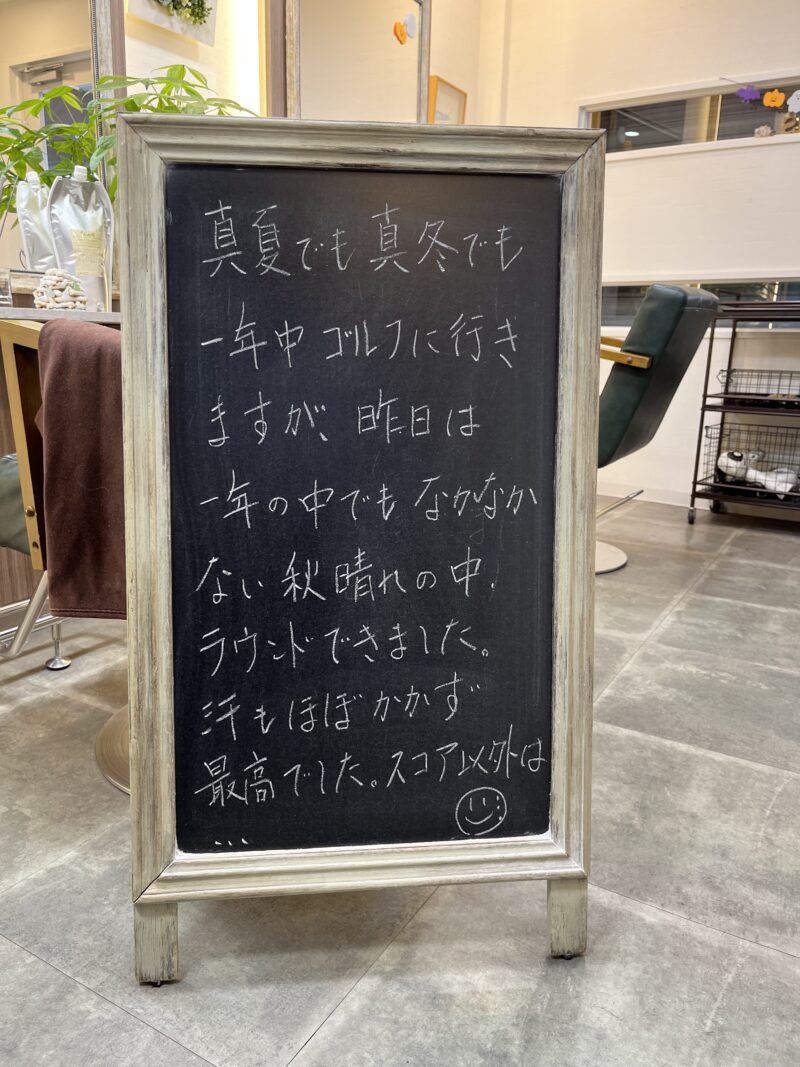 真夏でも真冬でも
一年中ゴルフに行き
ますが、昨日は
一年の中でもなかなか
ない秋晴れの中、
ラウンドできました。
汗もほぼかかず
最高でした。スコア以外は
...